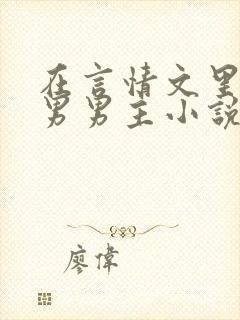 在言情文里
男男主小說
廖偉